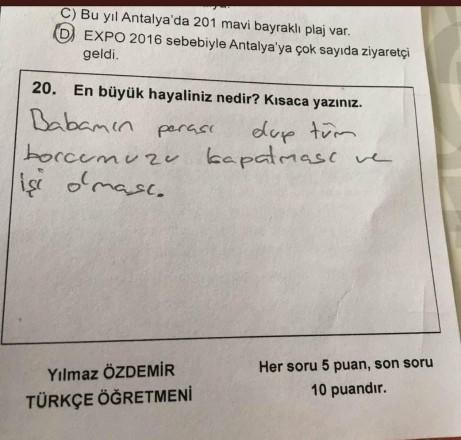 C) Bu yıl Antalya'da 201 mavi bayraklı plaj var.
D) EXPO 2016 sebebiyle Antalya'ya çok sayıda ziyaretçi
geldi.
20. En büyük hayaliniz nedir? Kısaca yazınız.
Babamın parası olup tüm
borcumuzu kapatması ve
işi olması.
Yılmaz ÖZDEMİR
TÜRKÇE ÖĞRETMENİ
Her soru 5 puan, son soru
10 puandır.